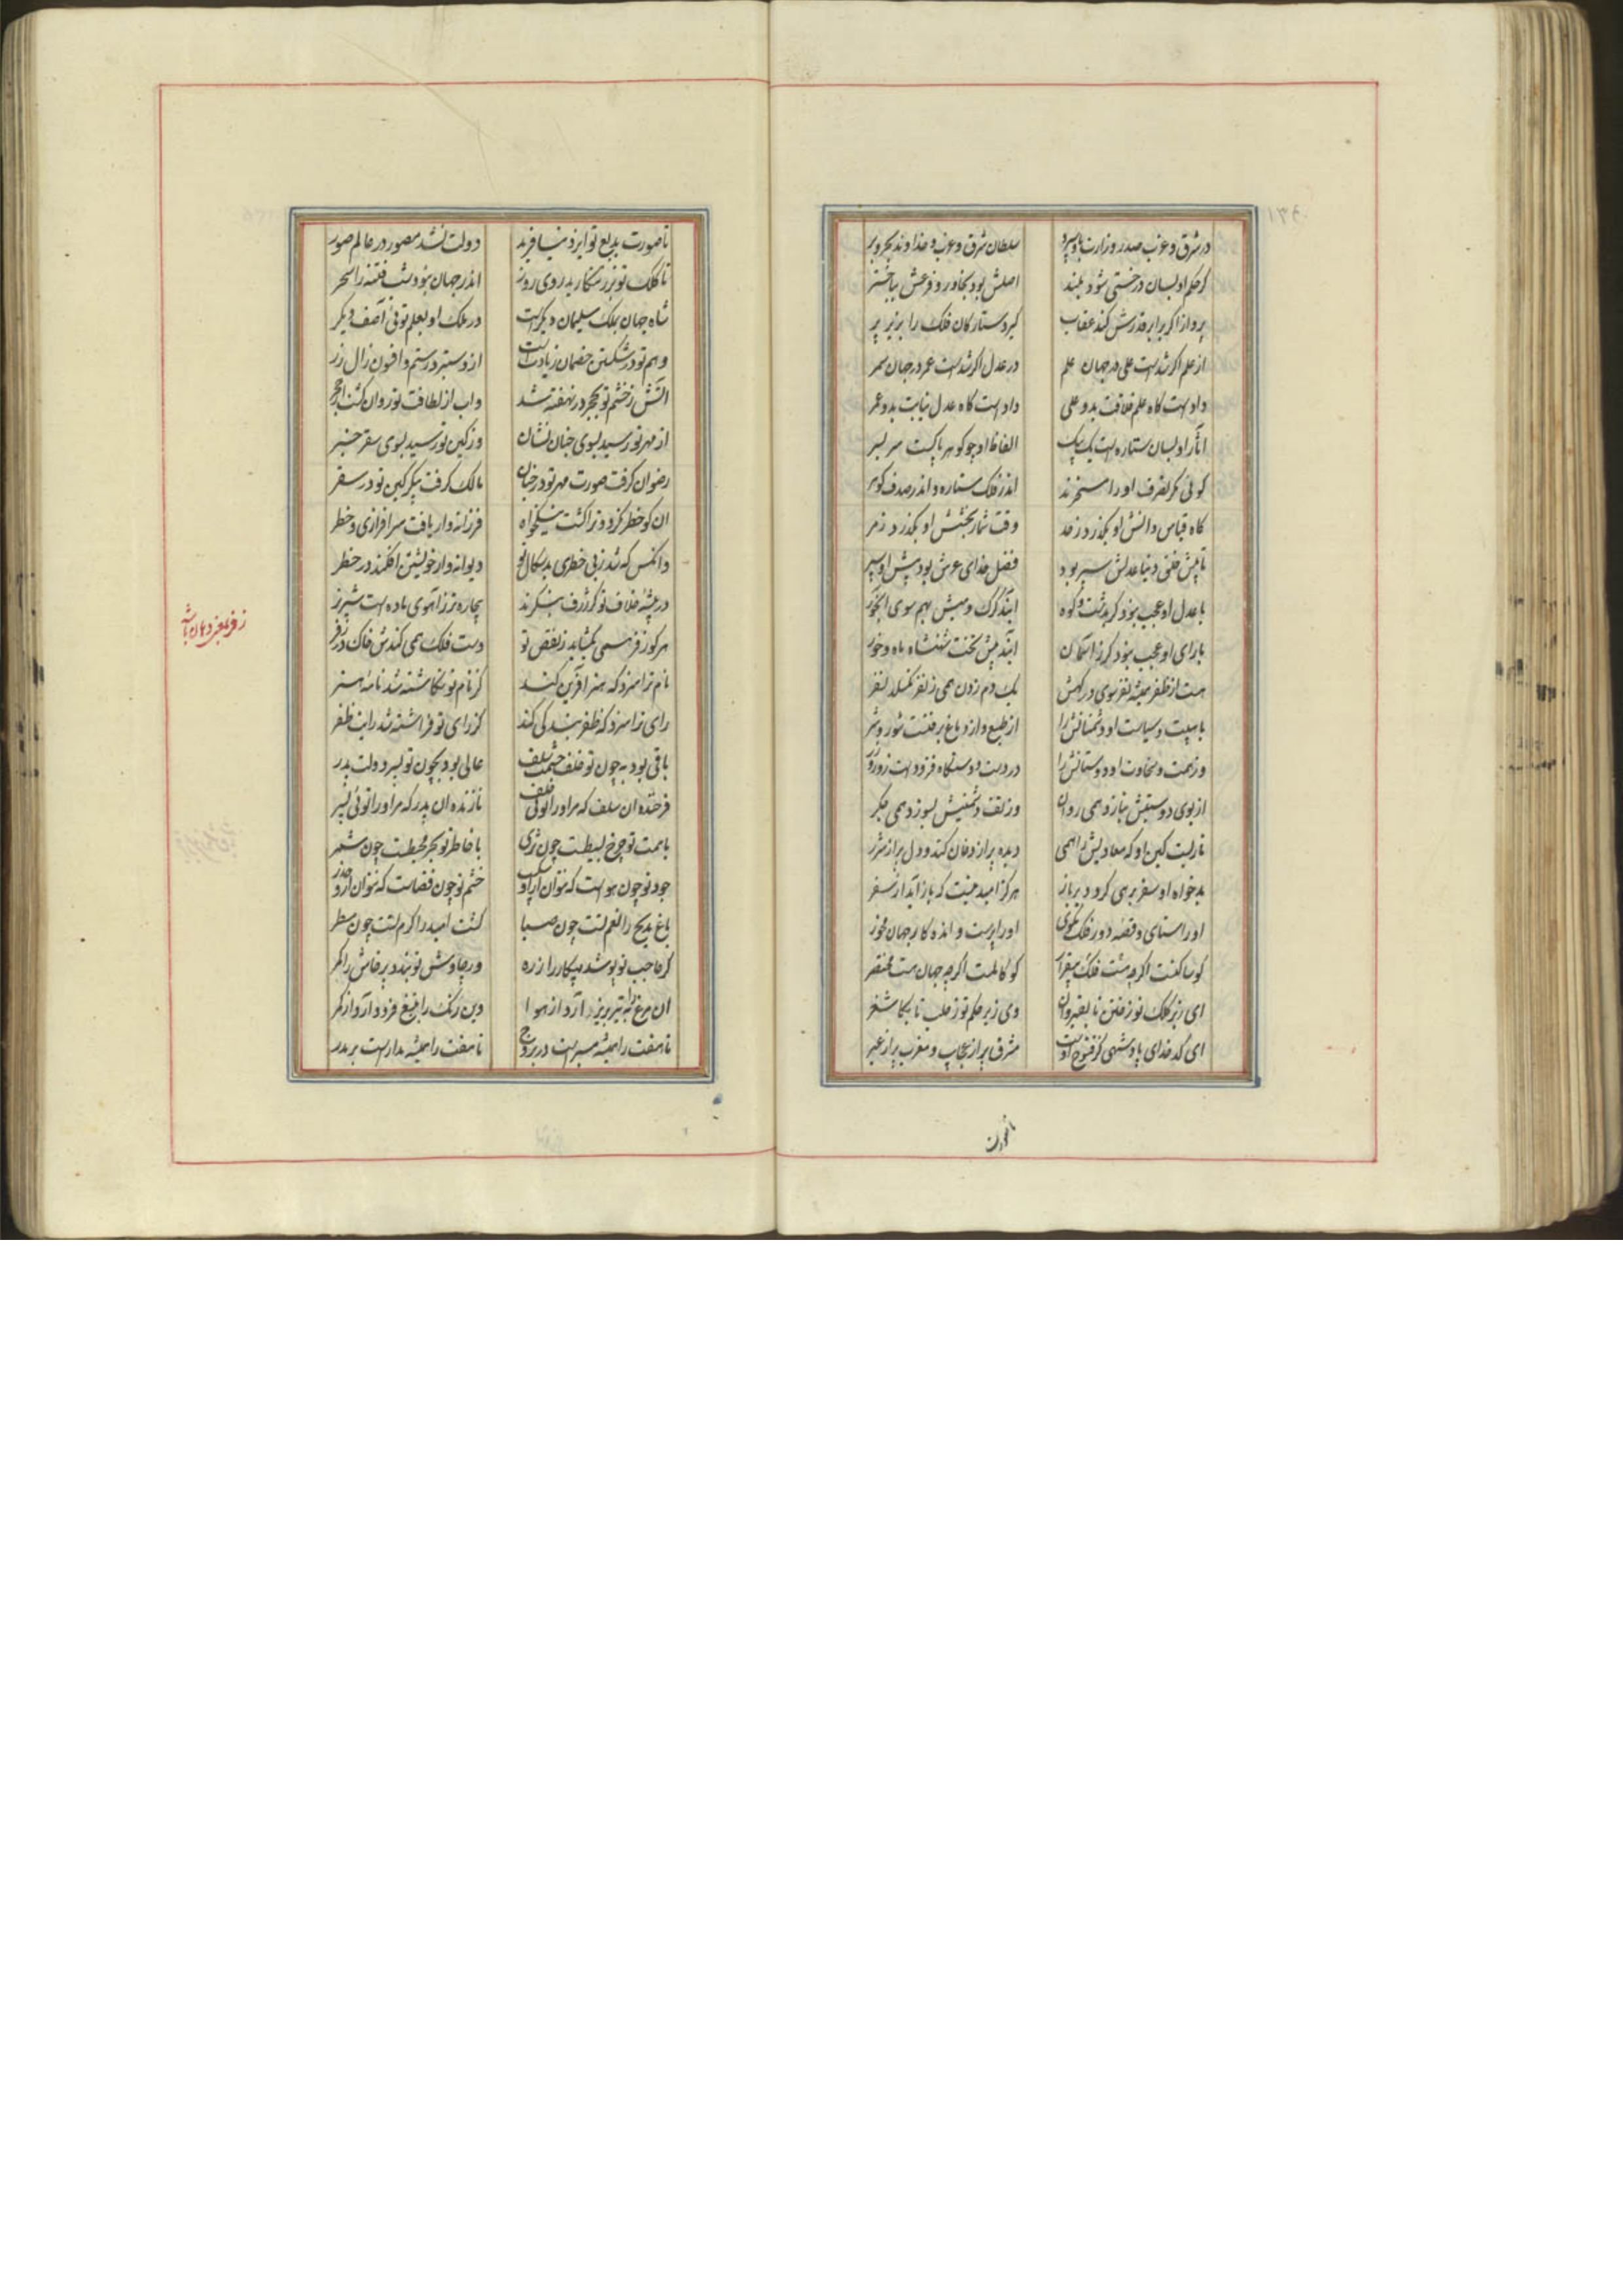 در شرق و غرب صدر وزارت باو سپرد سلطان شرق و غرب و خداوند بحر و بر
کر حکم او بسان درختی شود بلند اصلش بود بخاور و فرعش بباختر
پرواز اکر برابر قدرش کند عقاب کیرد ستارکان فلک را بزیر پر
از علم اکر شدست علی در جهان علم در عدل اکر شدست عمر در جهان سمر
دادست کاه علم خلافت بدو علی دادست کاه عدل نیابت بدو عمر
آثار او بسان ستاره است یک بیک الفاظ او چو کوهر پاکست سر بسر
کوئی مکر تصرف او را مسخرند اندر فلک ستاره و اندر صدف کهر
کاه قیاس دانش او بکذرد ز حد وقت شمار بخشش او بکذرد ز مر
تا پیش خلق دنیا عدلش سپر بود فضل خدای عرش بود پیش او سپر
با عدل او عجب نبود کر بدشت و کوه آیند کرک و میش بهم سوی آبخور
با رای او عجب نبود کر ز آسمان آیند پیش تخت شهنشاه ماه و خور
هست از ظفر همیشه نفر سوی درکهش یک دم زدن همی ز نفر نکسلد نفر
با هیبت و سیاست او دشمنانش را از طبع و از دماغ برفتست شور و شر
وز همت و سخاوت او دوستانش را در دست و دستکاه فزودست زور و زر
از بوی دوستیش بنازد همی روان وز تف دشمنیش بسوزد همی جکر
ناریست کین او که معادیش را همی دیده پر از دخان کند و دل پر از شرر
بدخواه او سفر برهی کرد دیر باز هرکز امید نیست که باز آید از سفر
او را ستای و قصه دور فلک مکوی او را پرست و انده کار جهان مخور
کو ساکنست اکرچه هست فلک بیقرار کو کاملست اکرچه جهان هست مختصر
ای زیر کلک تو ز ختن تا بقیروان وی زیر حکم تو ز حلب تا بکاشغر
ای کدخدای پادشهی کز فتوح اوست مشرق پر از عجایب و مغرب پر از عبر
تا صورت بدیع تو ایزد نیافرید دولت نشد مصور در عالم صور
تا کلک تو بزر ننکارید روی روز اندر جهان نبود شب فتنه را سحر
شاه جهان بملک سلیمان دیکرست در ملک او بعلم توئی آصف دکر
وهم تو در شکستن خصمان زیادتست از دستبرد رستم و افسون زال زر
آتش ز خشم تو بحجر در نهفته شد واب از لطافت تو روان کشت از حجر
از مهر تو رسید بسوی جنان نشان وز کین تو رسید بسوی سقر خبر
رضوان کرفت صورت مهر تو در جنان مالک کرفت پیکر کین تو در سقر
ان کو خطر نکرد و ترا کشت نیکخواه فرزانه وار یافت سرافرازی و خطر
وانکس که شد ز بی خطری بدسکال تو دیوانه وار خویشتن افکند در خطر
در بیشه خلاف تو کر ژرف بنکرند بیچاره تر ز آهوی ماده است شیر نر
هر کو زفر همی بکشاید بنقص تو دست فلک همی کندش خاک در زفر
نام ترا سزد که هنر آفرین کند کز نام تو نکاشته شد نامه هنر
رای ترا سزد که ظفر بندکی کند کز رای تو فراشته شد رایت ظفر
باقی بود به چون تو خلف حشمت سلف عالی بود بچون تو پسر دولت پدر
فرخنده ان سلف که مر او را توئی خلف نازنده ان پدر که مر او را توئی پسر
با همت تو چرخ بسیطست چون ثری با خاطر تو بحر محیطست چون شمر
باغ مدیح را نعم تست چون صبا کشت امید را کرم تست چون مطر
کر حاجب تو پوشد پیکار را زره ور چاوش تو بندد پرخاش را کمر
تا هفت را همیشه مسیرست در بروج تا هفت را همیشه مدارست بر مدر
زفر بمعنی دهان باشد